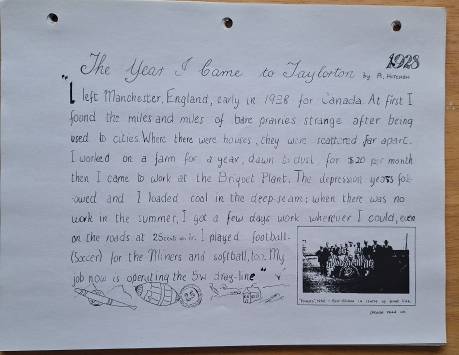 1928
The Year I Came to Taylorton by R. HITCHEN
"I left Manchester, England, early in 1928 for Canada. At first I
found the miles and miles of bare prairies strange after being
used to cities. Where there were houses, they were scattered far apart.
I worked on a farm for a year, dawn to dusk for $20 per month
then I came to work at the Briquet Plant. The depression years fol-
owed and I loaded coal in the deep-seam; when there was no
work in the summer, I got a few days work wherever I could, even
on the roads at 25cents an hr. I played football
(Soccer) for the Miners and softball, too. My
job now is operating the 5W drag-line"